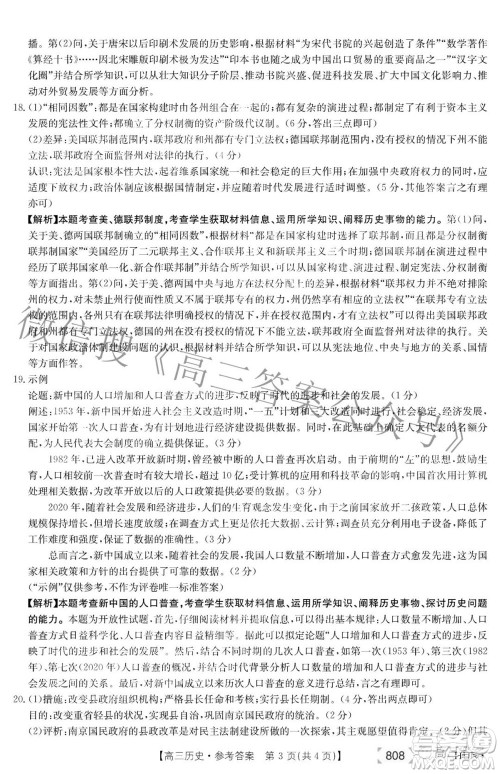 播。第(2)问，关于唐宋以后印刷术发展的历史影响，根据材料“为宋代书院的兴盛创造了条件”“数学著作
《算经十书》……因北宋雕版印刷术的发达而得以保存”“印本书籍……成为中国出口贸易的重要商品”“汉字文
化圈”并结合所学知识，可从教育发展、文化典籍的保存与传承、社会进步、促进科举制的发展、扩大对外
经济贸易、扩大中国文化影响力、推动世界文明进步等方面分析。
18. (1)“相同因数”：都是在国家构建时由各州组合在一起的；都有复杂的演进过程；都形成了有利于资本主义
发展的共同体；都是以分权制衡为原则的资产阶级代议制。(6分，答出三点即可)
(2)差异：美国联邦制范围内，联邦和州都有专门立法权；德国联邦制范围内，专门立法权主要归联邦所有，
联邦政府全面监督州对法律的执行。(4分)
认识：宪法是国家根本性大法，是维系国家统一和社会稳定的重要因素；在加强中央政府权力的同时，应
赋予地方相应的权力；政治体制的建设应适合本国国情。(4分，答出两点即可)
【解析】本题考查美、德联邦制度，考查学生获取材料信息、运用所学知识、阐释历史事物的能力。第(1)问，
关于美、德两国联邦制形成的“相同因数”，根据材料“都是在国家构建时由各州组合在一起的，都是分权制衡
的国家”“美国经历了二元联邦主义、合作联邦主义和新联邦主义三个时期”“德国的联邦制在演进过程中
经历了联邦国家单一化、新合作联邦制和新联邦制等阶段”并结合所学知识，可从国家构建、演进过程、分
权制衡的国家、宪法的规定等方面概括。第(2)问，关于差异，根据材料“美国的联邦权力并不是绝对排除
州的权力的，美、德两国中央与地方在分权上的不同”“州仍然享有相应的立法权”“在德国，专门立法权主要
归联邦所有，各州只有在联邦明确授权的情况下，才可以行使立法权，联邦政府全面监督州对法律的执行”
并结合所学知识，可从立法权、监督权等方面概括；关于认识，可从宪法地位、中央与地方的权力分配、符合
本国国情等方面阐释。
19. 示例
论题：新中国的人口增加和人口普查方式的发展，体现了时代的进步和社会的发展。(1分)
阐述：1953年，新中国开始进入社会主义改造时期，“一五”计划和“三大改造”的实施，提高了农业生产力，
新中国人口实现增长；人口普查的方式主要是人工统计，通过人口普查，确定人口人数，为召开全国人民
代表大会制度的确立提供保障。(2分)
1982年，已进入改革开放新时期，人口普查方式走入正轨。由于前期的“左”的思想影响，加上生产力的发
展，人口相对之前两次普查增长较快，超过10亿；受计算机的应用和科技革命的影响，部分调查采用了计
算机的方式，为改革开放时期的人口政策提供了依据。(2分)
2020年，随着社会的发展和经济进步，人们的生育观念发生变化，国家放开二孩政策，我国人口继续增长；
随着信息化、全球化和新技术时代的到来，人口普查方式采用电子化方式，调查员充分利用电子设备，降低
工作量，提升了工作效率。(2分)
总而言之，随着时代的进步和发展，我国人口数量不断增加；人口普查方式愈发先进，体现了社会的进步和
发展。(1分)
(“示例”仅供参考，不作为评卷唯一标准答案)
【解析】本题考查新中国的人口普查，考查学生获取材料信息、运用所学知识、阐释历史事物、探讨历史问题
的能力。本题为开放性试题，可从新中国人口增加和人口普查方式的发展、新中国人口普查在时代进步中
日益科学化、人口普查内容日益精细等方面拟定论题；根据表格内容，选取第一次(1953年)、第三次(1982
年)、第七次(2020年)人口普查并结合所学知识，从人口增长的原因、人口普查方式的发展等方面分析阐
述；最后结合论题对上述所论述的几次人口普查进行总结。
20. (1)措施：改变县政府组织机构；严格县长任命和考核；实行县长任期制。(4分，答出两点即可)
目的：改变县治积弊重重省轻县的状况，实现宪政目标，巩固其反动统治；建设地方自治，推进县政建设。
(4分)
(2)评析：南京国民政府的县政改革，从其主观愿望来说，是
高三历史·参考答案　第3页(共4页)
808
微信搜《高三答案公众号》